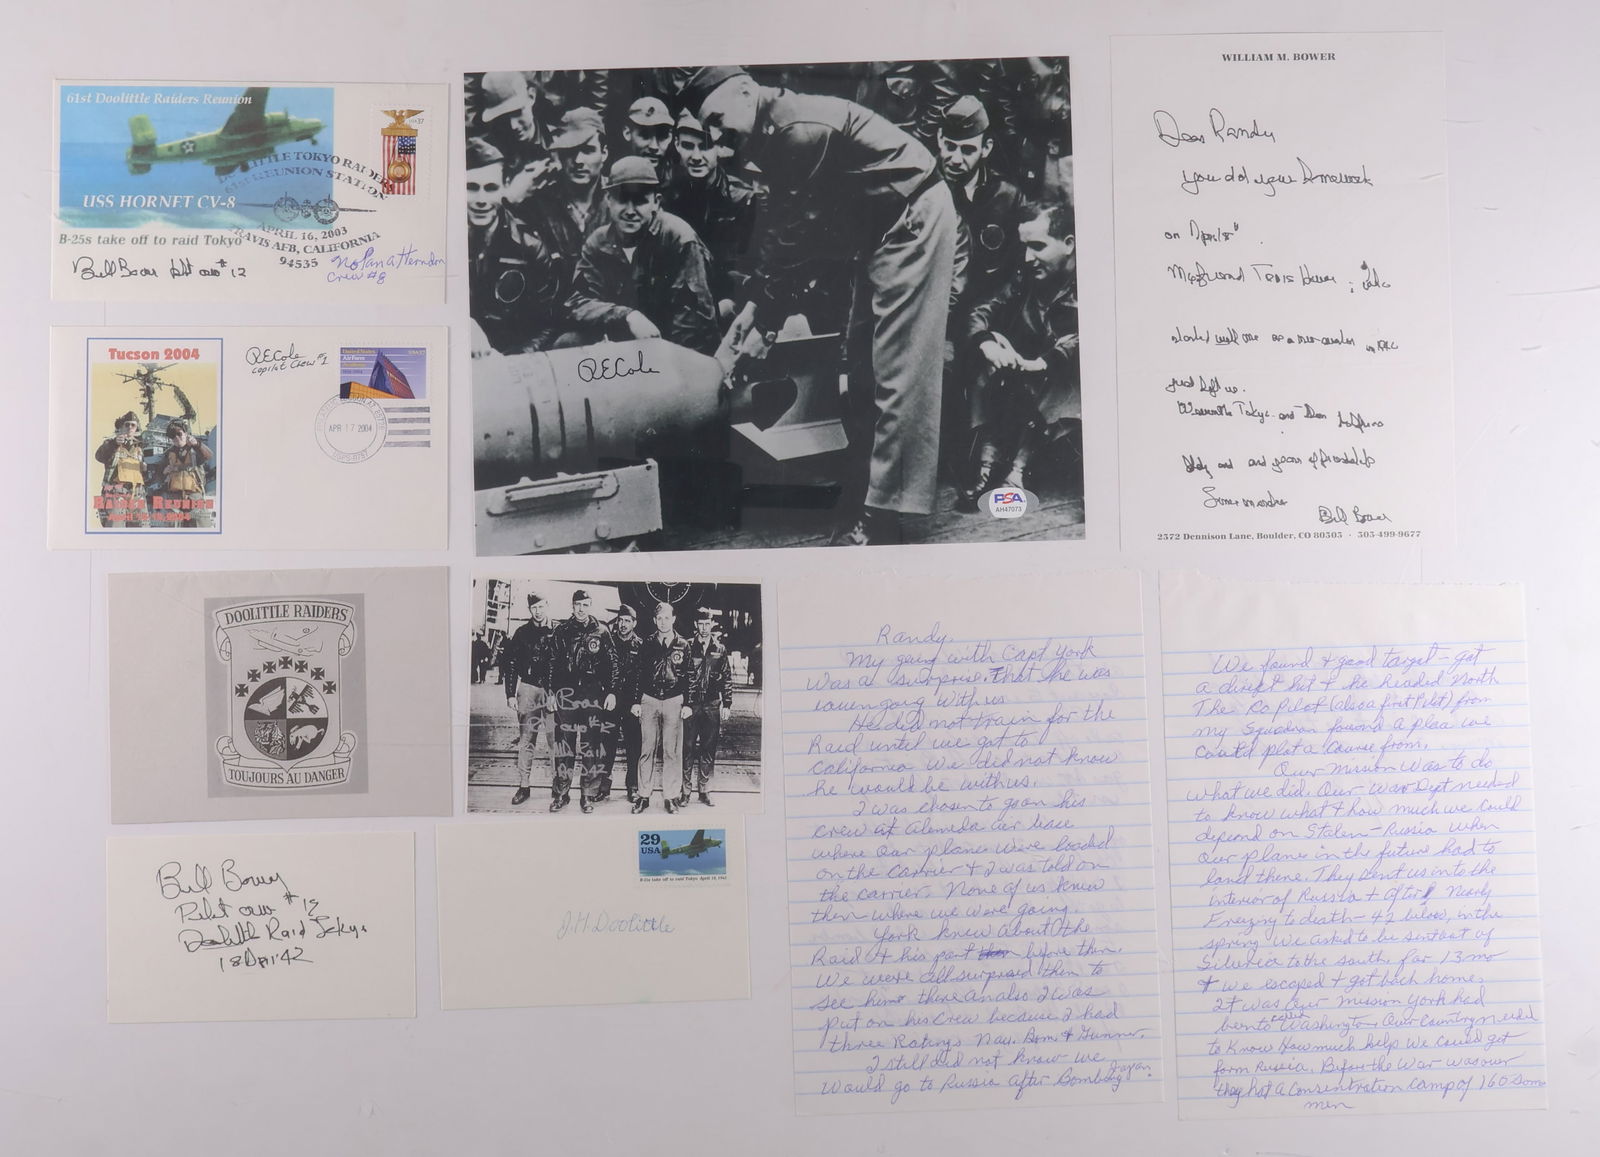 61st Doolittle Raiders Reunion
USS HORNET CV-8
B-25s take off to raid Tokyo
DOOLITTLE TOKYO RAIDERS
61st REUNION STATION
APRIL 16, 2003
TRAVIS AFB, CALIFORNIA
94535
Bill Bower plt crew #12
Nolan A Herndon
Crew #8
Tucson 2004
RAIDER REUNION
RECole
copilot Crew #1
United States
Air Force
USA 37
APR 17 2004
RECole
PSA
AH47073
WILLIAM M. BOWER
Dear Randy
you did your homework
on April 18th.
My friend Travis Hoover
started with me as a
in 1940
just left us.
Tokyo and
and years of friendship
Bill Bower
2372 Dennison Lane, Boulder, CO 80303 · 303-499-9677
DOOLITTLE RAIDERS
TOUJOURS AU DANGER
Bill Bower
Plt crew #12
Raid
Apr 42
Bill Bower
Pilot crew #12
Doolittle Raid Tokyo
18 Apr '42
29
USA
B-25s take off to raid Tokyo April 18, 1942
J.H. Doolittle
Randy.
My going with Capt York
was a surprise. That he was
even going with us
He did not train for the
Raid until we got to
California. We did not know
he would be with us.
I was chosen to go on his
crew at Alemeda air base
where our planes were loaded
on the carrier + I was told on
the carrier. None of us knew
then where we were going.
York knew about the
Raid + his part before then.
We were all surprised then to
see him there an also I was
put on his crew because I had
three Ratings Nav. Bom + Gunner.
I still did not know we
would go to Russia after Bombing Japan.
We found + good target - got
a direct hit + he headed North
The Co Pilot (also a first Pilot) from
my Squadron found a place we
could plot a course from.
Our mission was to do
what we did. Our War Dept needed
to know what + how much we could
depend on Stalen - Russia when
our planes in the future had to
land there. They sent us into the
interior of Russia + after nearly
Freezing to death - 42 below, in the
spring we asked to be sent out of
Siberia to the south, for 13 mo
+ we escaped + got back home.
It was our mission York had
been to called Washington. Our country needed
to know How much help we could get
form Russia. Before the War was over
they had a consentration camp of 160 some
men